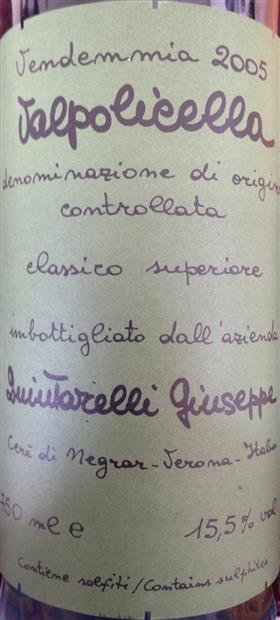 Vendemmia 2005
Valpolicella
denominazione di origine
controllata
classico superiore
imbottigliato dall'azienda
Quintarelli Giuseppe
Cerè di Negrar - Verona - Italia
750 ml e
15,5% vol
Contiene solfiti / Contains sulphites